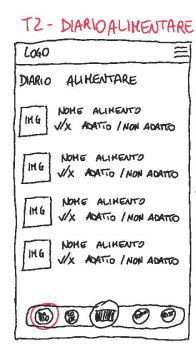 T2 - DIARIO ALIMENTARE
LOGO
DIARIO ALIMENTARE
IMG
NOME ALIMENTO
V/X ADATTO / NON ADATTO
IMG
NOME ALIMENTO
V/X ADATTO / NON ADATTO
IMG
NOME ALIMENTO
V/X ADATTO / NON ADATTO
IMG
NOME ALIMENTO
V/X ADATTO / NON ADATTO